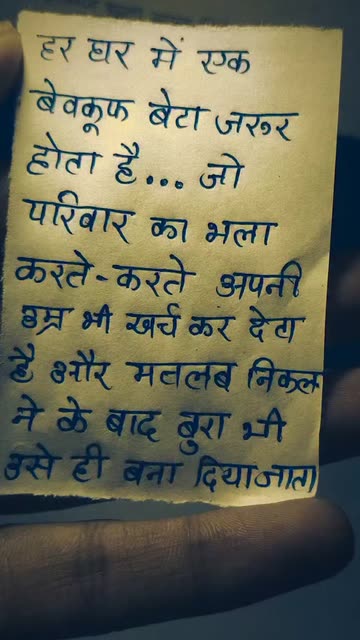 हर घर में एक
बेवकूफ बेटा जरुर
होता है... जो
परिवार का भला
करते-करते अपनी
उम्र भी खर्च कर देता
है और मतलब निकल
ने के बाद बुरा भी
उसे ही बना दिया जाता